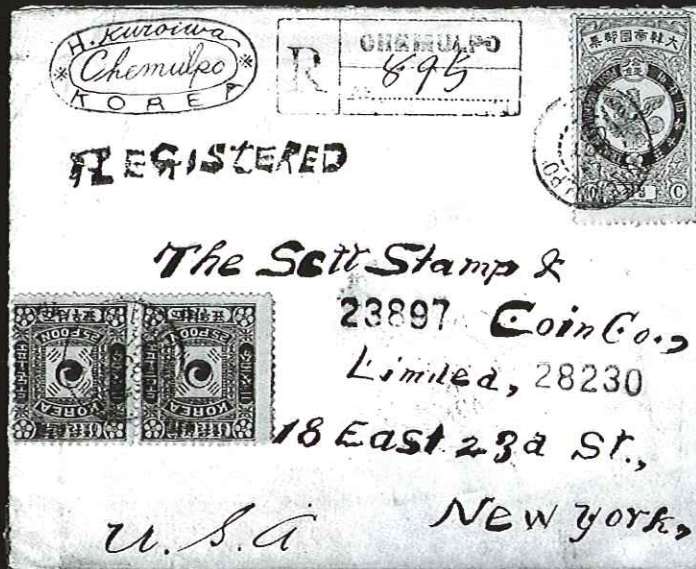 H. Kuroiwa
Chemulpo
KOREA
R
CHEMULPO
895
大韓帝國郵票
REGISTERED
The Scott Stamp &
23897 Coin Co.,
Limited, 28230
18 East 23d St.,
New York,
U.S.A
25 POON
KOREA
25 POON
KOREA